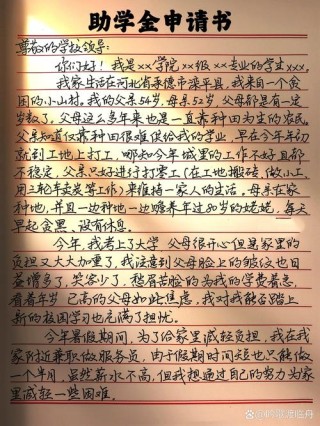 助学金申请书
尊敬的学校领导：
你们好！我是××学院××级××专业的学生×××。
我家生活在河北省承德市滦平县，我来自一个贫
困的小山村。我的父亲54岁，母亲52岁，父母都是有一定
岁数了，父母这么多年来也是一直靠种田为生的农民
父亲知道仅靠种田很难供给我的学业，早在今年年初
就到工地上打工，哪知今年城里的工作不好且都
不稳定，父亲只好进行打零工（在工地搬砖，做小工
用三轮车卖菜等工作）来维持一家人的生活。母亲在家
种地，并且一边种地一边赡养年过80岁的姥姥，每天
早起贪黑，没有休息。
今年，我考上了大学，父母很开心但是家里的
负担又大大加重了，我注意到父母脸上的皱纹也日
益增多了，笑容少了，愁眉苦脸的为我的学费着急，
看着年岁已高的父母如此焦虑，我对我能否踏上
新的校园学习也充满了担忧。
今年暑假期间，为了给家里减轻负担，我在我
家附近兼职做服务员，由于假期时间短也只能做
一个半月，虽然薪水不高，但我想通过自己的努力为家
里减轻一些困难。